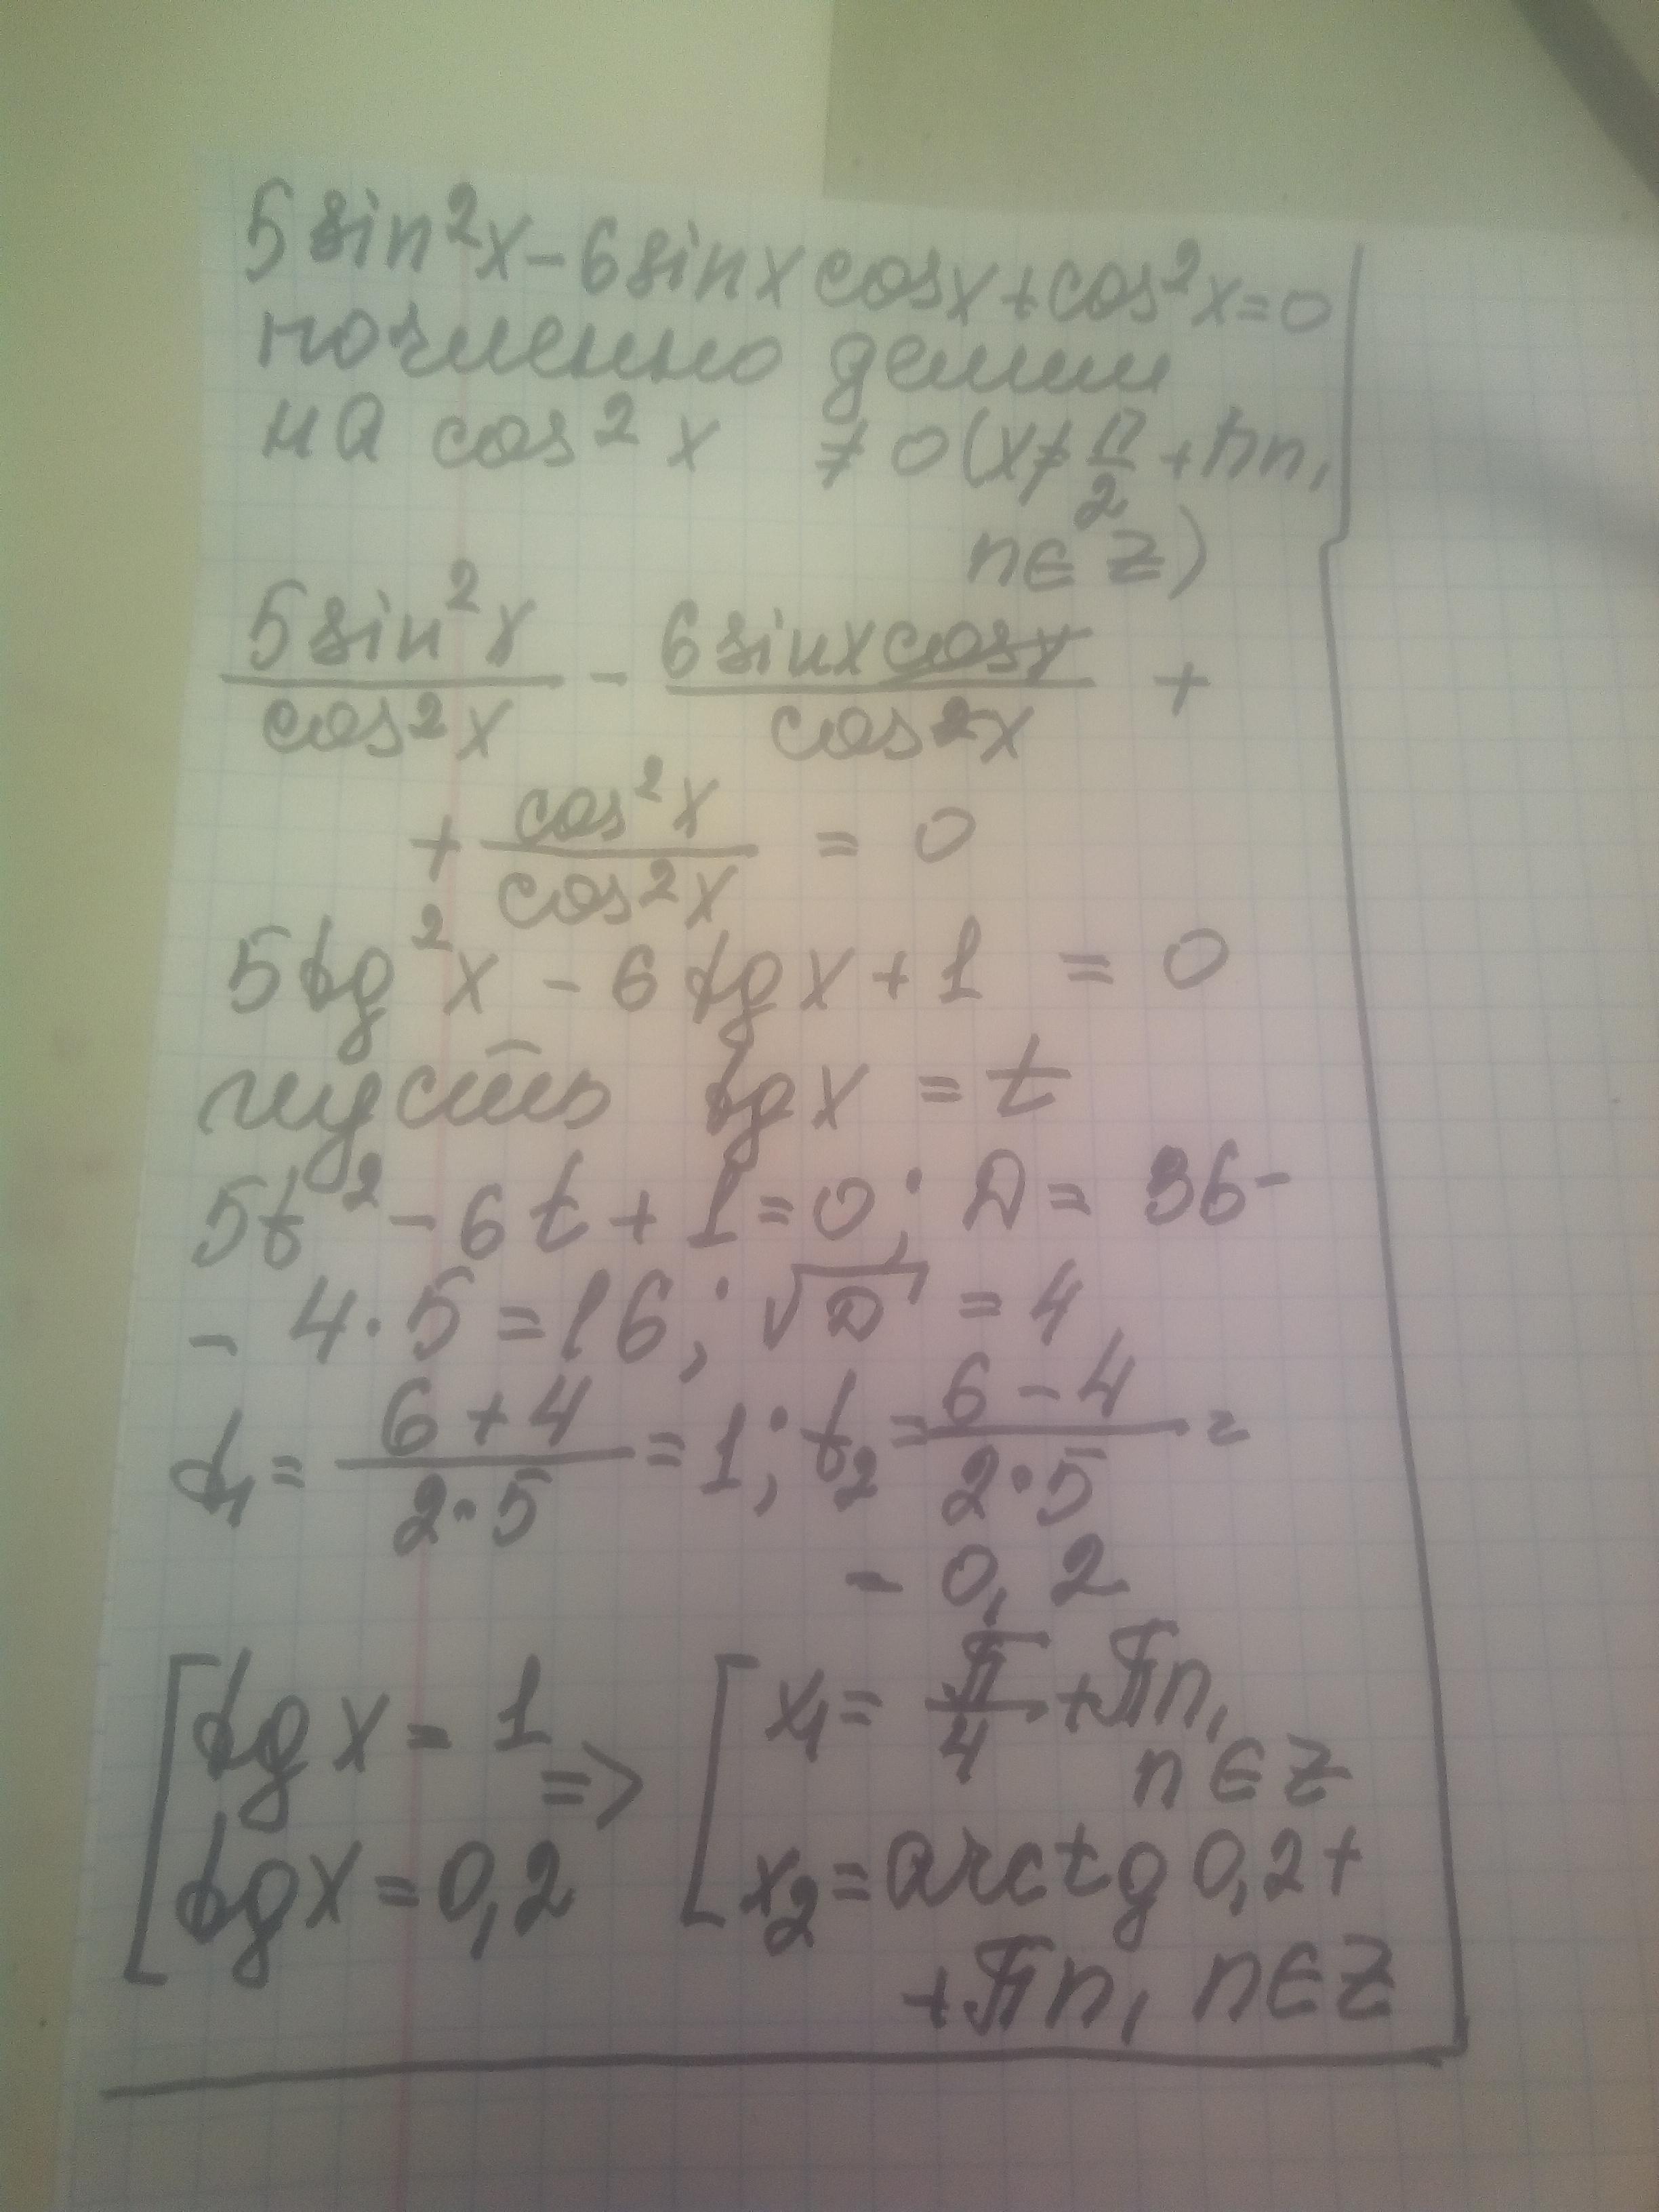 5 sin²x - 6 sin x cos x + cos²x = 0
почленно делим
на cos²x ≠ 0 (x ≠ π/2 + πn,
n ∈ Z)
5 sin²x / cos²x - 6 sin x cos x / cos²x +
+ cos²x / cos²x = 0
5 tg²x - 6 tg x + 1 = 0
пусть tg x = t
5t² - 6t + 1 = 0; D = 36 -
- 4·5 = 16; √D = 4
t₁ = (6 + 4) / (2·5) = 1; t₂ = (6 - 4) / (2·5) =
= 0,2
[ tg x = 1 => [ x₁ = π/4 + πn,
n ∈ Z
tg x = 0,2 x₂ = arctg 0,2 +
+ πn, n ∈ Z